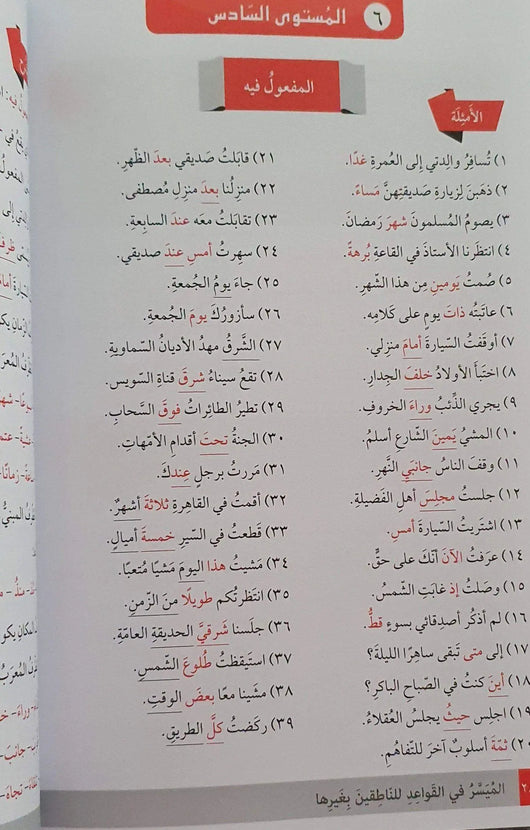 ٦
المُستوى السّادس
المفعولُ فيه
الأَمثِلَة
١) تُسافِرُ والِدتي إلى العُمرةِ غدًا.
٢) ذهَبنَ لِزيارةِ صَديقتِهنَّ مَساءً.
٣) يصومُ المُسلمونَ شهرَ رَمضانَ.
٤) انتظَرنا الأستاذَ في القاعةِ بُرهةً.
٥) صُمتُ يَومينِ مِن هذا الشّهرِ.
٦) عاتَبتُه ذاتَ يومٍ على كَلامِه.
٧) أوقَفتُ السّيارةَ أمامَ منزِلي.
٨) اختَبأَ الأولادُ خلفَ الجِدارِ.
٩) يجري الذّئبُ وراءَ الخروفِ.
١٠) المشيُ يَمينَ الشّارعِ أسلمُ.
١١) وقَفَ الناسُ جانبَيِ النّهرِ.
١٢) جلستُ مجلِسَ أهلِ الفَضيلةِ.
١٣) اشتَريتُ السّيارةَ أمسِ.
١٤) عرَفتُ الآنَ أنّكَ على حقٍّ.
١٥) وصَلتُ إذ غابَتِ الشّمسُ.
١٦) لم أذكُر أصدِقائي بسوءٍ قطُّ.
١٧) إلى متى تَبقى ساهِرًا الليلةَ؟
١٨) أينَ كنتَ في الصّباحِ الباكرِ؟
١٩) اجلِس حيثُ يجلِسُ العُقلاءُ.
٢٠) ثمّةَ أسلوبٌ آخرُ للتّفاهُمِ.
٢١) قابَلتُ صَديقي بعدَ الظّهرِ.
٢٢) منزِلُنا بعدَ منزِلِ مُصطفى.
٢٣) تقابَلتُ معَه عندَ السابِعةِ.
٢٤) سهِرتُ أمسِ عندَ صديقي.
٢٥) جاءَ يومُ الجُمعةِ.
٢٦) سأزورُكَ يومَ الجُمعةِ.
٢٧) الشّرقُ مهدُ الأديانُ السّماويةِ.
٢٨) تقعُ سيناءُ شرقَ قناةِ السّويس.
٢٩) تطيرُ الطائِراتُ فوقَ السَّحابِ.
٣٠) الجنةُ تحتَ أقدامِ الأمّهاتِ.
٣١) مَررتُ برجلٍ عِندِكَ.
٣٢) أقمتُ في القاهِرةِ ثلاثةَ أشهُرٍ.
٣٣) قَطعتُ في السّيرِ خمسةَ أميالٍ.
٣٤) مَشيتُ هذا اليومَ مَشيًا مُتعبًا.
٣٥) انتظَرتُكم طويلًا منَ الزّمنِ.
٣٦) جلَسنا شَرقيَّ الحديقةِ العامّةِ.
٣٧) استَيقظتُ طُلوعَ الشّمسِ.
٣٨) مشَينا معًا بعضَ الوقتِ.
٣٩) ركَضتُ كلَّ الطريقِ.
المُيَسَّرُ في القَواعِدِ للناطِقينَ بِغَيرِها